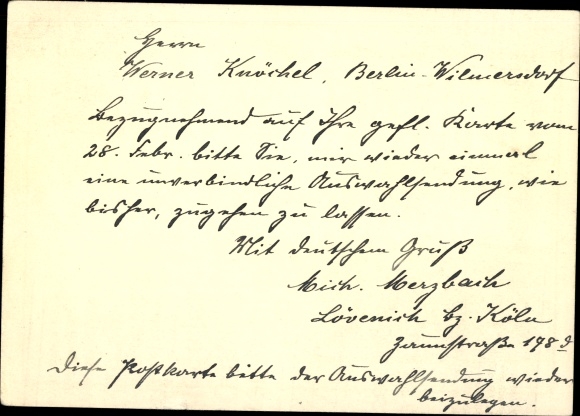 Herrn
Werner Knöchel, Berlin-Wilmersdorf
Bezugnehmend auf Ihre gefl. Karte vom
28. Febr. bitte Sie, mir wieder einmal
eine unverbindliche Auswahlsendung, wie
bisher, zugehen zu lassen.
Mit deutschem Gruß
Mich. Merzbach
Lövenich bz. Köln
Zaunstraße 178 d
Diese Postkarte bitte der Auswahlsendung wieder
beizulegen.